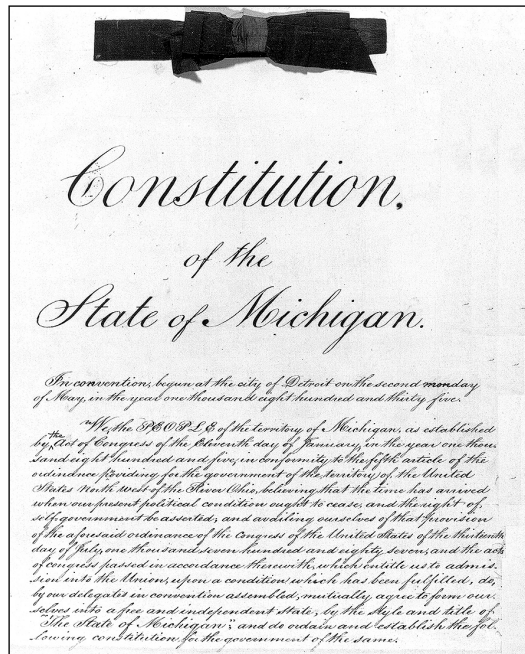 Constitution.
of the
State of Michigan.
In convention, begun at the city of Detroit on the second monday
of May, in the year one thousand eight hundred and thirty five.
We, the PEOPLE of the territory of Michigan, as established
by the Act of Congress of the Eleventh day of January, in the year one thou-
sand eight hundred and five, in conformity to the fifth article of the
ordinance providing for the government of the territory of the United
States North West of the River Ohio, believing that the time has arrived
when our present political condition ought to cease, and the right of
self-government be asserted; and availing ourselves of that provision
of the aforesaid ordinance of the congress of the United States of the thirteenth
day of July, one thousand seven hundred and eighty seven, and the acts
of congress passed in accordance therewith, which entitle us to admis-
sion into the Union, upon a condition which has been fulfilled, do,
by our delegates in convention assembled, mutually agree to form our-
selves into a free and independent state, by the style and title of
"The State of Michigan"; and do ordain and establish the fol-
lowing constitution for the government of the same.